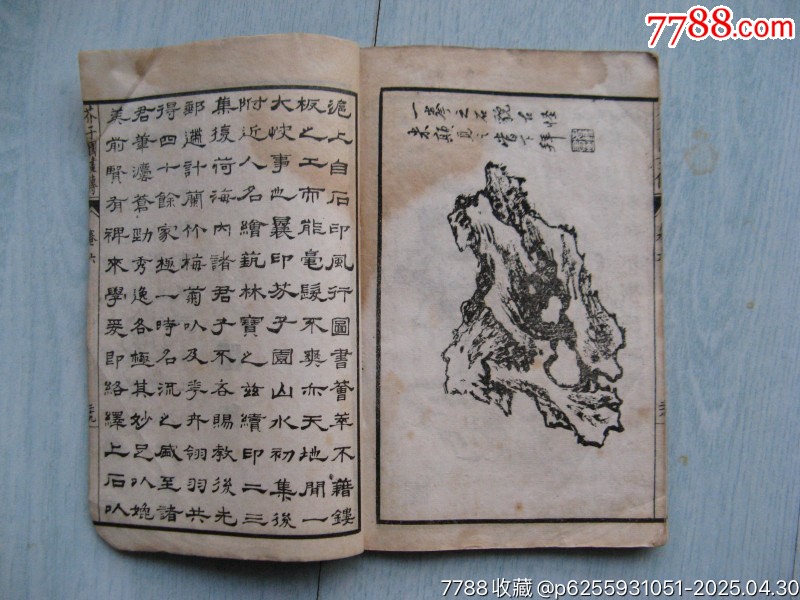 7788.com
一拳之石貌古怪
米顛見之當下拜
滬上自石印風行圖書薈萃不籍鏤
板之工而能毫髮不爽亦天地間一
大快事也曩印芥子園山水初集後
附近人名繪蓺林寶之茲續印二三
集復荷海內諸君子不吝賜教後先
郵遞計蘭竹梅菊以及華卉翎羽共
得四十餘家極一時名流之盛至諸
君筆灋蒼勁秀逸各極其妙足以媲
美前賢有裨來學爰即絡繹上石以
芥子園畫傳
卷六
7788收藏 @p6255931051-2025.04.30